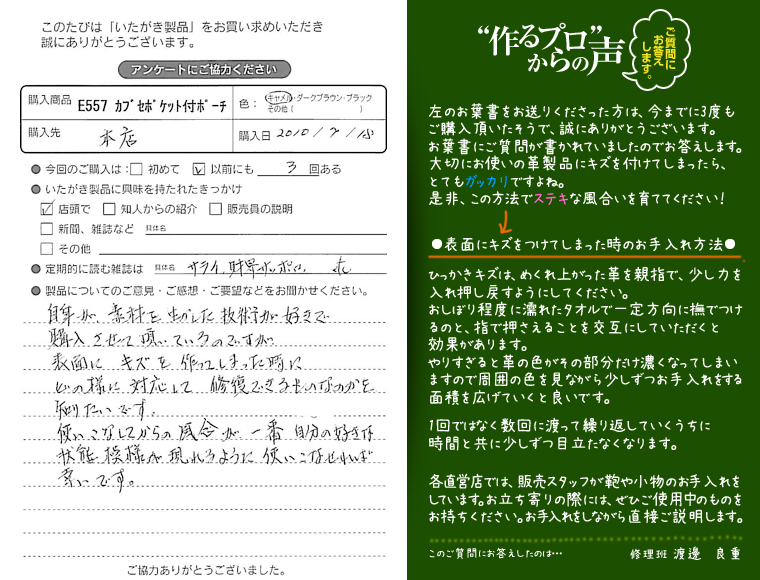 このたびは「いたがき製品」をお買い求めいただき
誠にありがとうございます。
アンケートにご協力ください
購入商品 E557 カブセポケット付ポーチ 色： キャメル・ダークブラウン・ブラック
その他（ ）
購入先 本店 購入日 2010/7/
今回のご購入は： 初めて 以前にも 3 回ある
いたがき製品に興味を持たれたきっかけ
店頭で 知人からの紹介 販売員の説明
新聞、雑誌など 具体名
その他
定期的に読む雑誌は 具体名 サライ、財界サッポロ、
製品についてのご意見・ご感想・ご要望などをお聞かせください。
素材を生かした技術が好きで
購入させて頂いているのですが
表面に キズを作ってしまった時に
どの様に対応して 修復できるものなのかを
知りたいです。
使いこなしてからの風合が一番自分の好きな
状態、模様が現れるように使いこなせれば
幸いです。
ご協力ありがとうございました。
“作るプロ”
からの声
ご質問に
お答え
します。
左のお葉書をお送りくださった方は、今までに3度も
ご購入頂いたそうで、誠にありがとうございます。
お葉書にご質問が書かれていましたのでお答えします。
大切にお使いの革製品にキズを付けてしまったら、
とてもガッカリですよね。
是非、この方法でステキな風合いを育ててください！
●表面にキズをつけてしまった時のお手入れ方法●
ひっかきキズは、めくれ上がった革を親指で、少し力を
入れ押し戻すようにしてください。
おしぼり程度に濡れたタオルで一定方向に撫でつけ
るのと、指で押さえることを交互にしていただくと
効果があります。
やりすぎると革の色がその部分だけ濃くなってしまい
ますので周囲の色を見ながら少しずつお手入れをする
面積を広げていくと良いです。
1回ではなく数回に渡って繰り返していくうちに
時間と共に少しずつ目立たなくなります。
各直営店では、販売スタッフが鞄や小物のお手入れを
しています。お立ち寄りの際には、ぜひご使用中のものを
お持ちください。お手入れをしながら直接ご説明します。
このご質問にお答えしたのは… 修理班 渡邊 良重